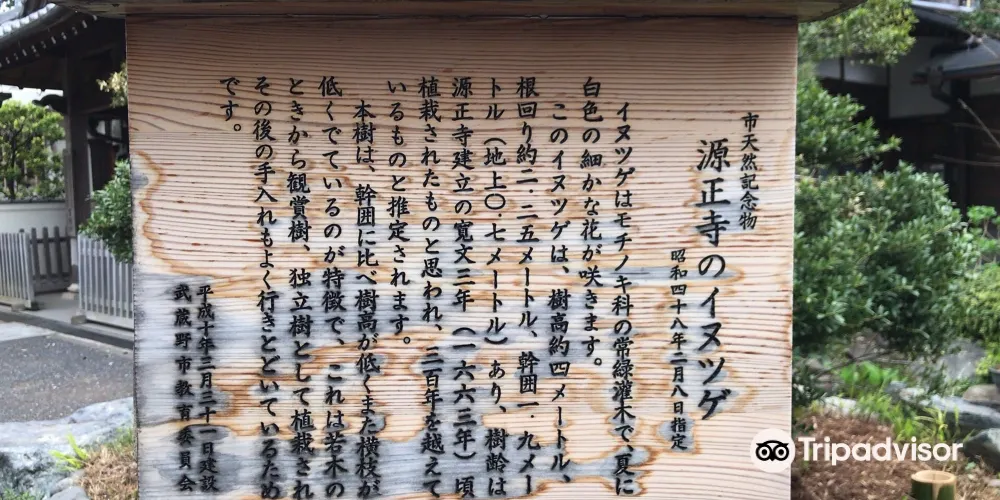 市天然記念物
源正寺のイヌツゲ
昭和四十八年二月八日指定
イヌツゲはモチノキ科の常緑灌木で、夏に
白色の細かな花が咲きます。
このイヌツゲは、樹高約四メートル、
根回り約二・二五メートル、幹囲一・九メー
トル（地上〇・七メートル）あり、樹齢は
源正寺建立の寛文三年（一六六三年）頃
植栽されたものと思われ、三百年を越えて
いるものと推定されます。
本樹は、幹囲に比べ樹高が低くまた横枝が
低くでているのが特徴で、これは若木の
ときから観賞樹、独立樹として植栽され
その後の手入れもよく行きとどいているため
です。
平成十年三月三十一日建設
武蔵野市教育委員会
Tripadvisor